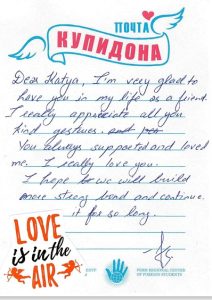 ПОЧТА
КУПИДОНА
Dear Katya, I'm very glad to
have you in my life as a friend.
I really appreciate all you
kind gestures.
You always supported and loved
me. I really love you.
I hope we will build
more strong bond and continue
it for so long.
LOVE
is in the
AIR
PERM REGIONAL CENTER
OF FOREIGN STUDENTS